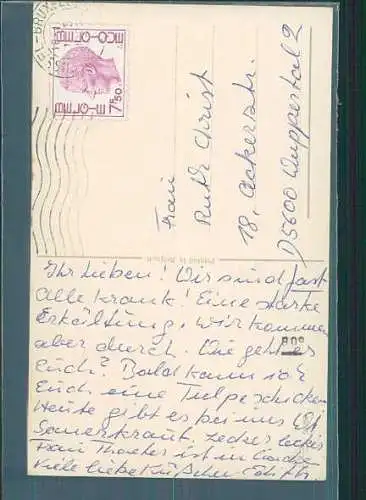 BRUXELLES
BELGIË
BELGIQUE
7F50
Frau
Ruth Christ
18, Ackerstr.
D5600 Wuppertal 2
Printed in Belgium
Ihr Lieben! Wir sind fast
alle krank! Eine starke
Erkältung, wir kommen
aber durch. Wie geht es
Euch? Bald kann ich
Euch eine Tulpe schicken
Heute gibt es bei uns
Sauerkraut, lecker lecker
Frau ist in
Viele liebe Küßchen